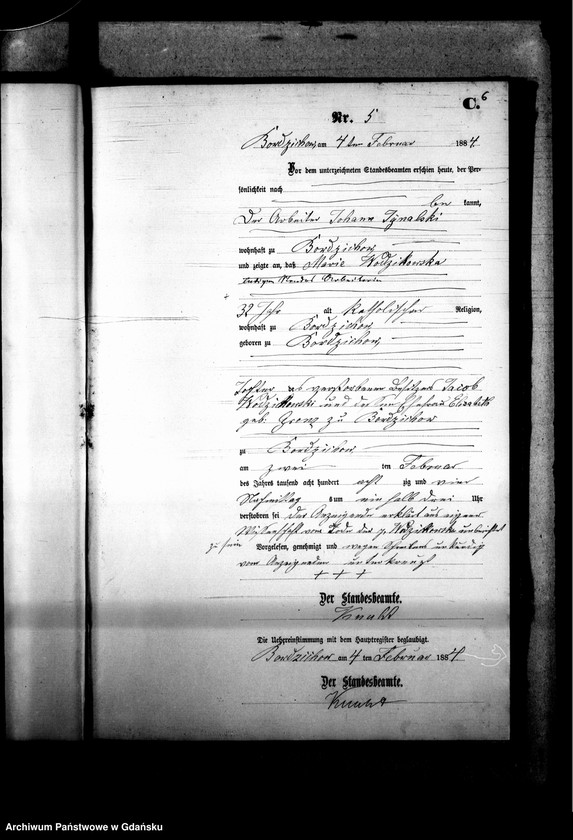 C. 6
Nr. 5
Bordzichow am 4ten Februar 1884
Vor dem unterzeichneten Standesbeamten erschien heute, der Per-
sönlichkeit nach
kannt,
Der Arbeiter Johann Tynalski
wohnhaft zu Bordzichow
und zeigte an, daß Marie Wodzikowska
ledigen Standes Arbeiterin
32 Jahr alt katholischer Religion,
wohnhaft zu Bordzichow
geboren zu Bordzichow
Tochter des verstorbenen Besitzers Jacob
Wodzikowski und dessen Ehefrau Elisabeth
geb. zu Bordzichow
zu Bordzichow
am zwei ten Februar
des Jahres tausend acht hundert acht zig und vier
Nachmittag s um ein halb drei Uhr
verstorben sei der Anzeigende erklärt aus eigener
Wissenschaft vom Tode der p. Wodzikowska unterrichtet
zu sein Vorgelesen, genehmigt und wegen Schreibens unkundig
vom Anzeigenden unterkreuzt
+ + +
Der Standesbeamte.
Die Uebereinstimmung mit dem Hauptregister beglaubigt.
Bordzichow am 4 ten Februar 1884
Der Standesbeamte.
Archiwum Państwowe w Gdańsku